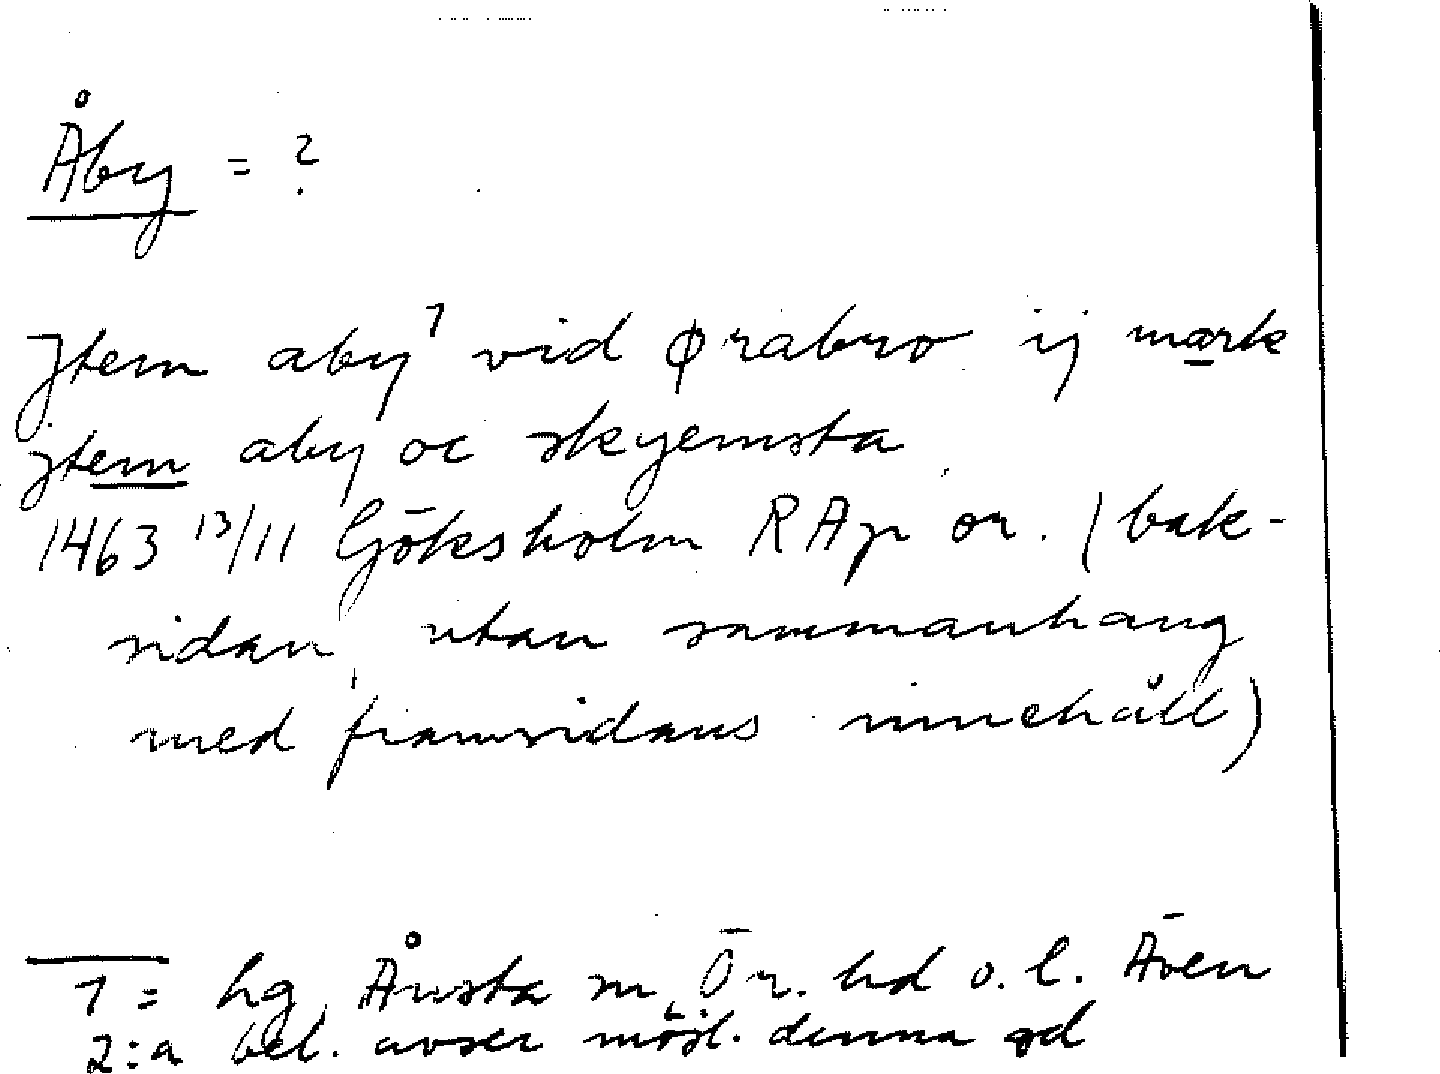 Åby = ?
Jtem aby¹ vid ørabro ij mark
jtem aby oc skyemsta
1463 13/11 Göksholm RAp or. (bak-
sidan, utan sammanhang
med framsidans innehåll)
1 = hg, Ånsta sn, Ör. hd o. l. Även
2:a bel. avser möjl. denna gd